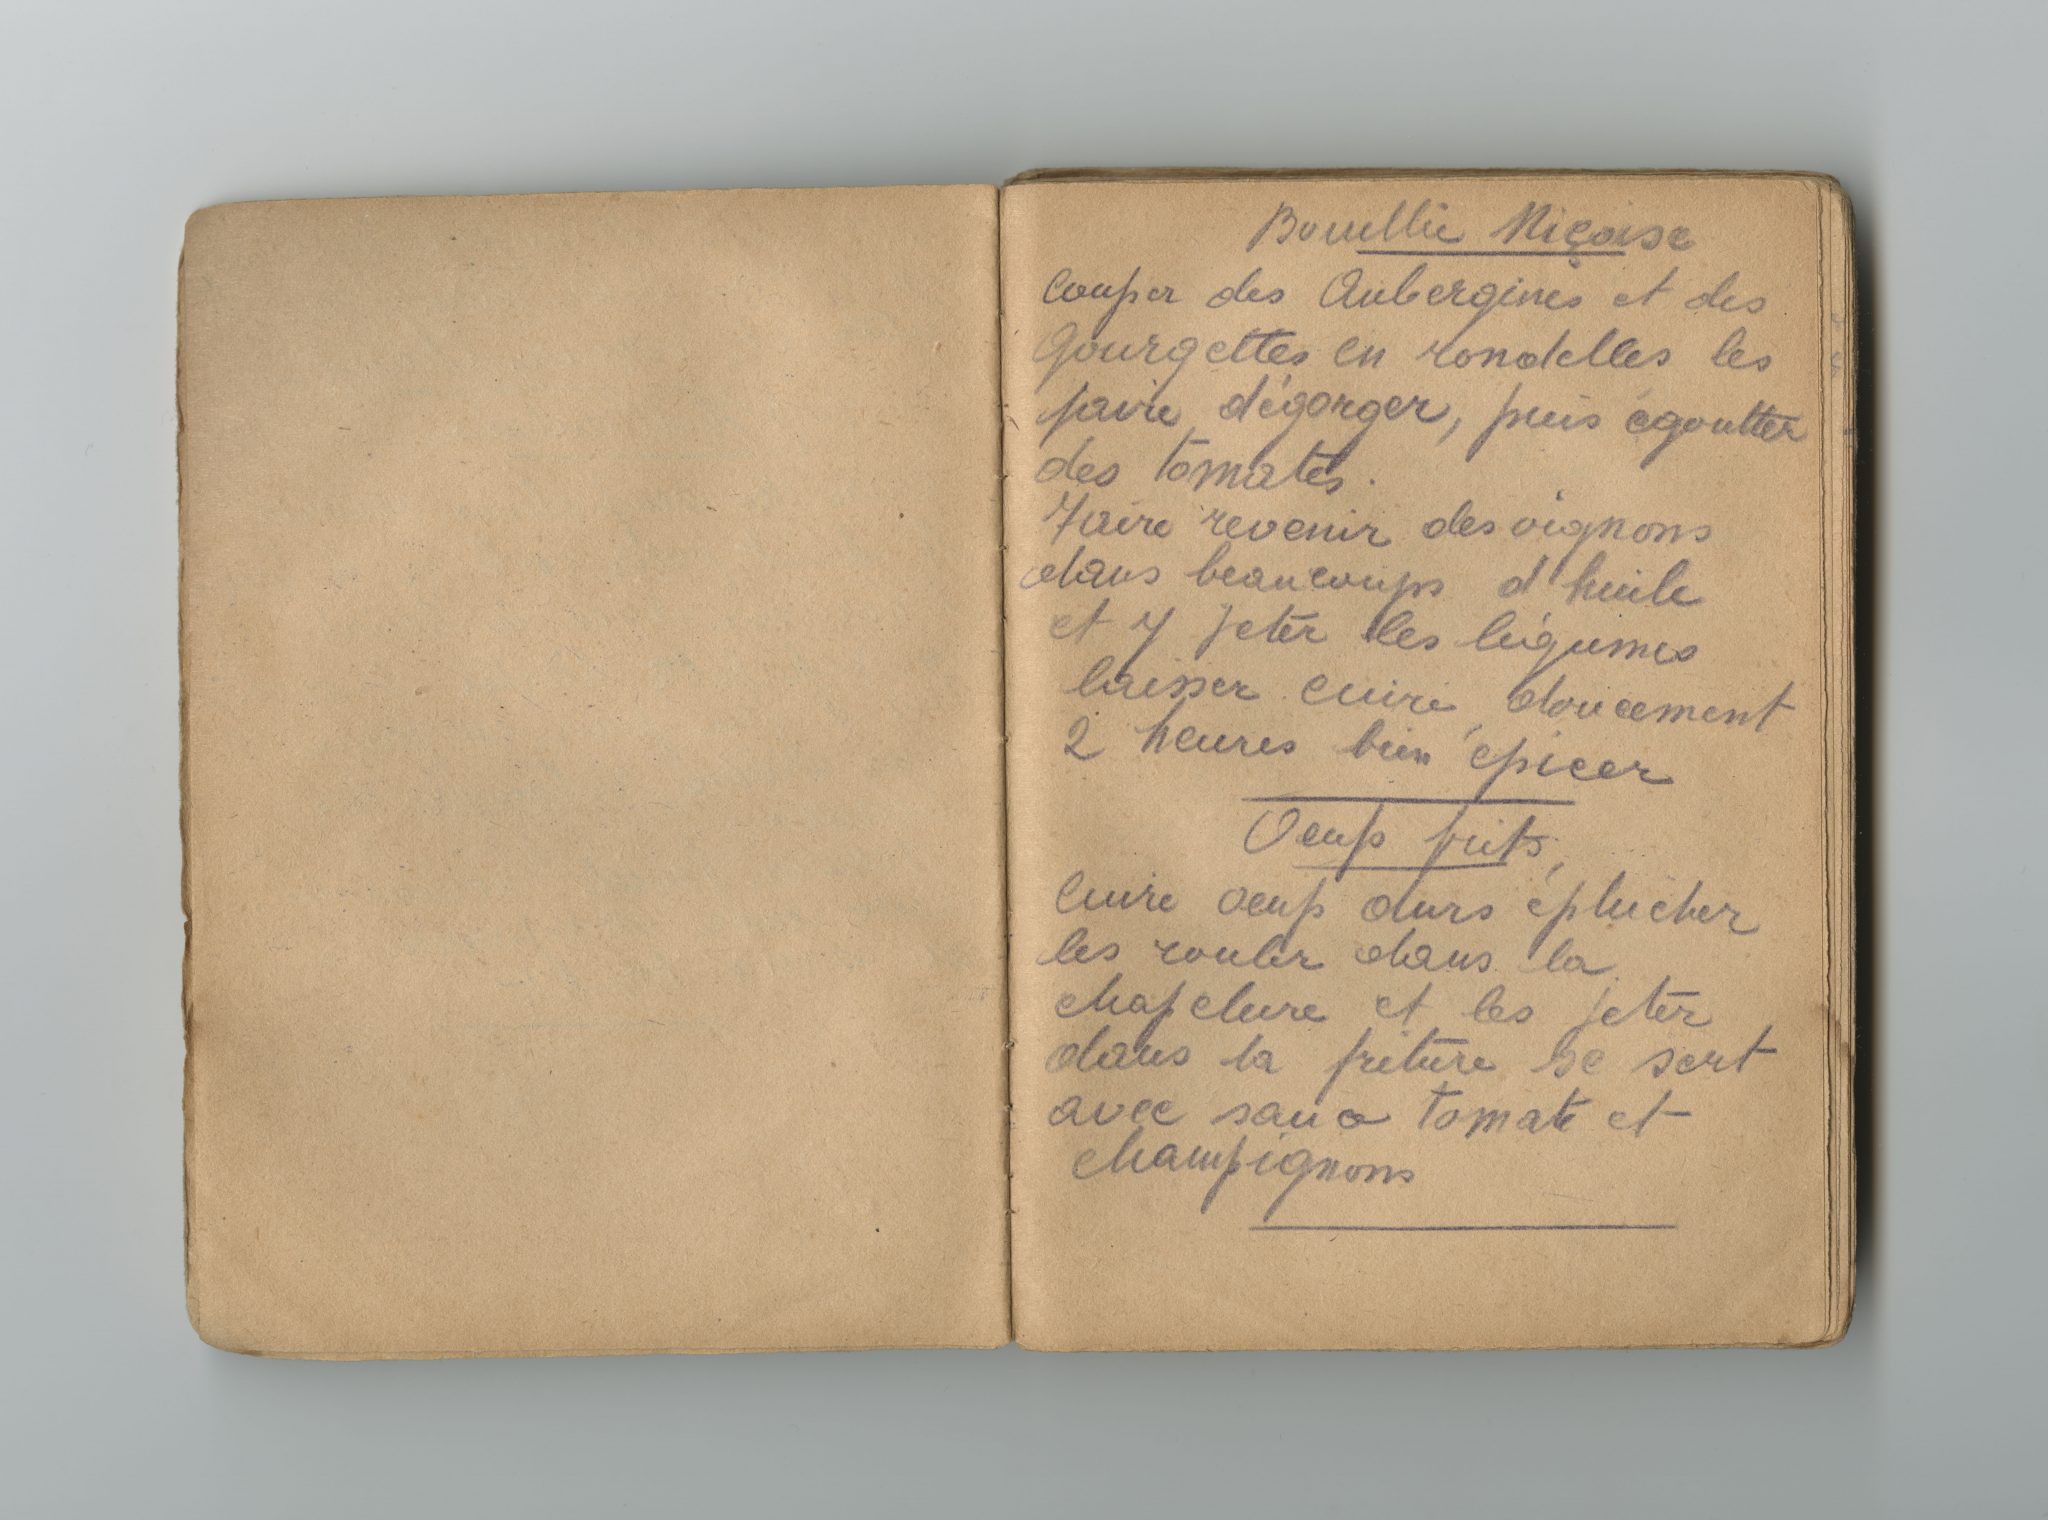 Bouillie Niçoise
Couper des Aubergines et des
Gourgettes en rondelles les
faire dégorger, puis égoutter
des tomates.
Faire revenir des oignons
dans beaucoups d'huile
et y jeter les légumes
laisser cuire doucement
2 heures bien épicer
Oeufs frits,
Cuire oeufs durs éplucher
les rouler dans la
chapelure et les jeter
dans la friture se sert
avec sauce tomate et
champignons